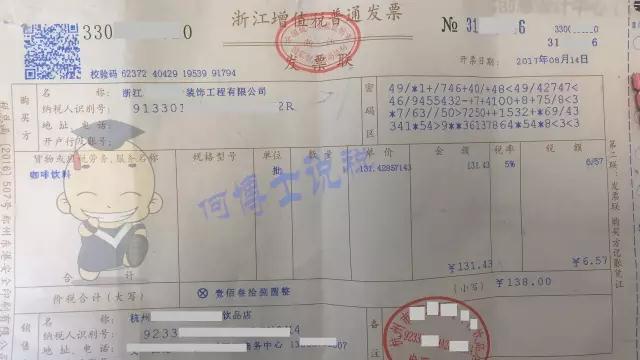 浙江增值税普通发票
发票联
330
№ 31 6
330
31 6
校验码 62372 40429 19539 91794
开票日期: 2017年08月14日
购买方
名 称: 浙江 装饰工程有限公司
纳税人识别号: 913301 2R
地 址、电 话:
开户行及账号:
密码区
49/*1+/746+40/+48<49/42747<
46/9455432-+7+4100+8+75/8<0
*7/63//50>7250++1532+*69/43
341*54>9**36137864*54*8<3<3
货物或应税劳务、服务名称 规格型号 单位 数量 单价 金额 税率 税额
咖啡饮料 批 131.42857143 131.43 5% 6.57
何博士说税
合 计 ¥131.43 ¥6.57
价税合计(大写) ⊗ 壹佰叁拾捌圆整 (小写) ¥138.00
名 称: 杭州 饮品店
纳税人识别号: 9233
地 址、电 话: 商务中心
备
第二联:发票联 购买方记账凭证